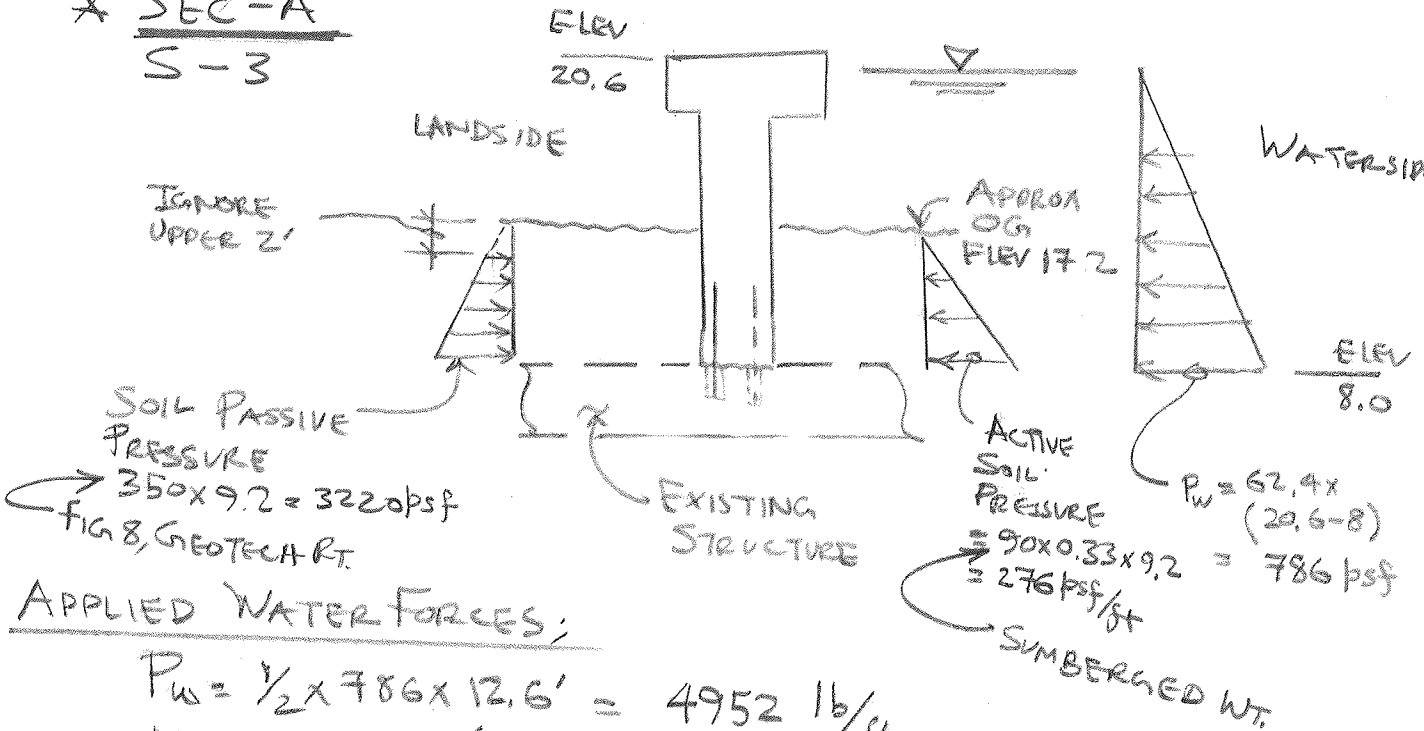 * SEC-A
S-3
ELEV
20.6
LANDSIDE
WATERSID
IGNORE
UPPER 2'
APPROX
OG
ELEV 17.2
ELEV
8.0
SOIL PASSIVE
PRESSURE
350x9.2 = 3220psf
FIG 8, GEOTECH RT.
EXISTING
STRUCTURE
ACTIVE
SOIL
PRESSURE
= 90x0.33x9.2
= 276psf/ft
SUMBERGED WT.
Pw = 62.4x
(20.6-8)
= 786 psf
APPLIED WATER FORCES:
Pw = 1/2 x 786 x 12.6' = 4952 lb/